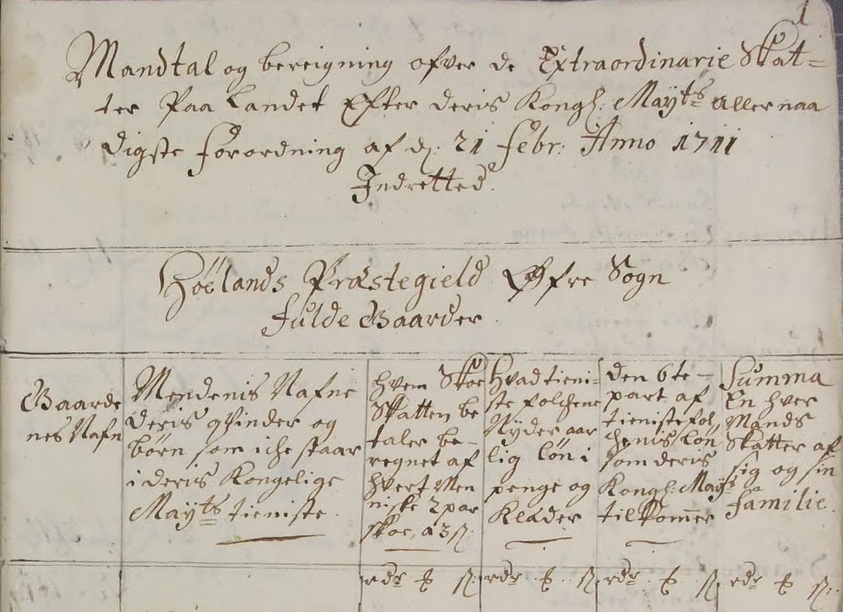 1
Mandtal og bereigning ofver de Extraordinarie Skat=
ter Paa Landet Efter deris Kongl: Mayts allernaa
digste forordning af d: 21 febr: Anno 1711
Indretted.
Høelands Præstegield Øfre Sogn
fulde Gaarder.
Gaarde
nes Nafn
Mendenis Nafne
deris qvinder og
børn som iche staar
i deris Kongelige
Mayts tieniste.
hvem Skoe
Skatten be
taler be-
regnet af
hvert Men
niske 2 par
skoe, a 3 s.
Hvad tieni-
ste folchene
Nyder aar
lig løn i
penge og
Klæder
den 6te-
part af
tienistefol
chenis løn
som deris
Kongl: Mayts
tilkommer
Summa
En hver
Mands
Skatter af
sig og sin
familie.
rdr s rdr s rdr s rdr s